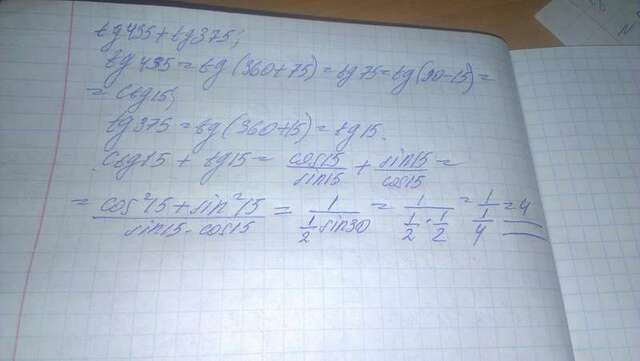 tg435+tg375;
tg435=tg(360+75)=tg75=tg(90-15)=
=ctg15;
tg375=tg(360+15)=tg15.
ctg15+tg15= cos15/sin15 + sin15/cos15 =
= (cos²15+sin²15)/(sin15·cos15) = 1/(1/2 sin30) = 1/(1/2·1/2) = 1/(1/4) = 4